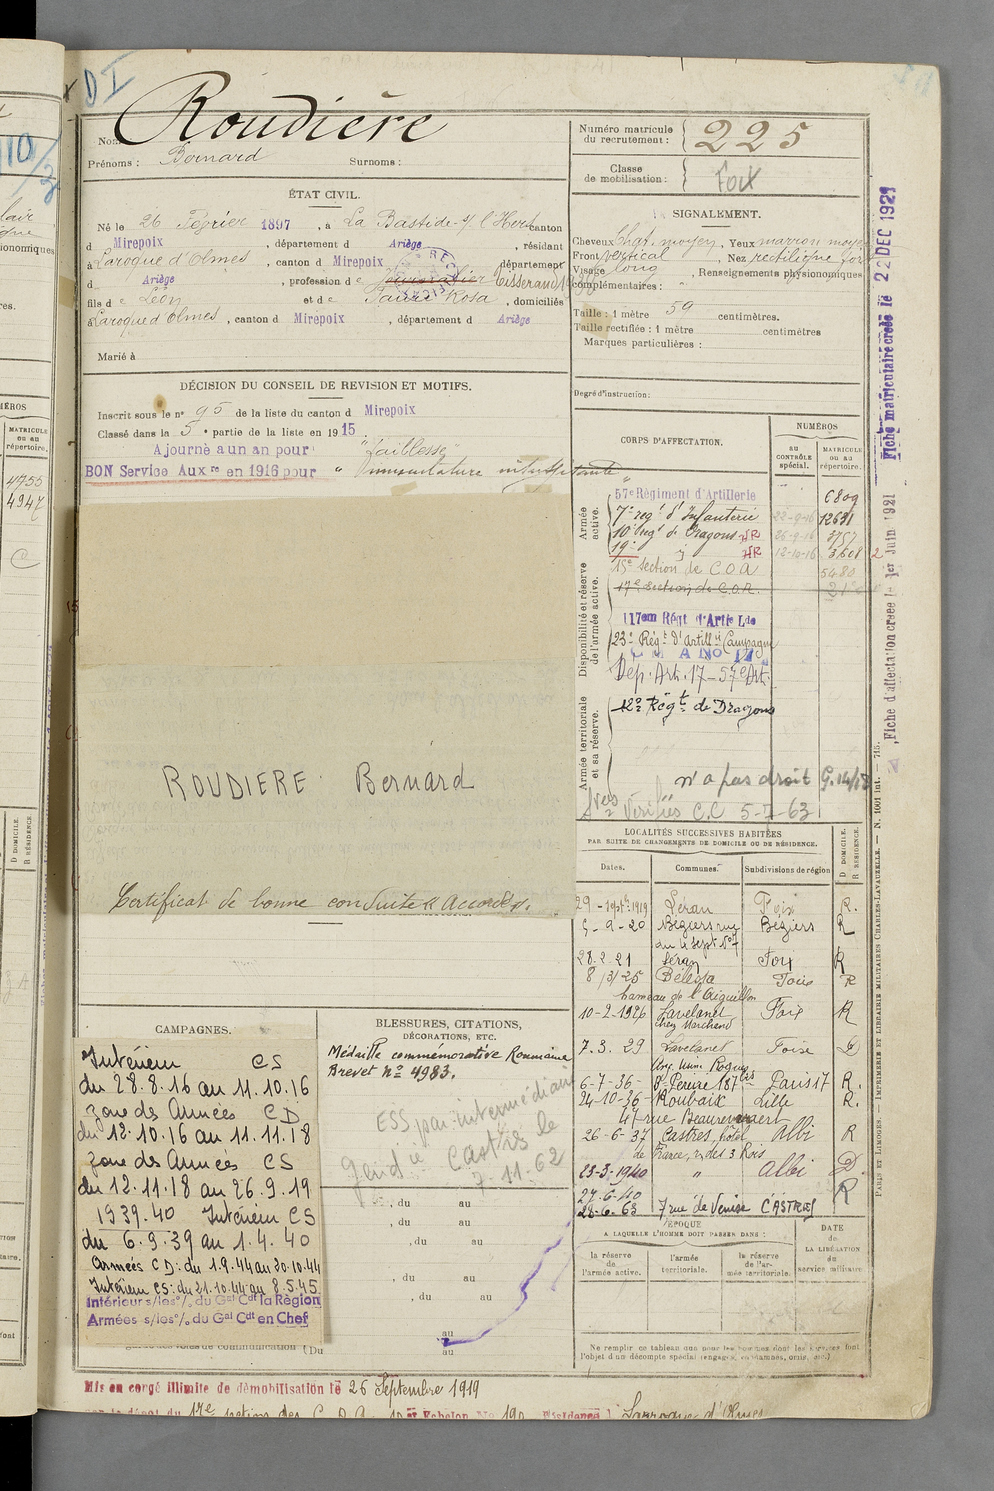 D I
Nom Roudière
Prénoms : Bernard Surnoms :
ÉTAT CIVIL.
Né le 26 Février 1897, à La Bastide-s/ l'Hers canton
d Mirepoix, département d Ariège, résidant
à Laroque d'Olmes, canton d Mirepoix, département
d Ariège, profession de Tisserand
fils de Léon et de Rosa, domiciliés
à Laroque d'Olmes, canton d Mirepoix, département d Ariège
Marié à
DÉCISION DU CONSEIL DE REVISION ET MOTIFS.
Inscrit sous le n° 95 de la liste du canton d Mirepoix
Classé dans la 5e partie de la liste en 1915
Ajourné a un an pour "faiblesse"
BON Service Auxre en 1916 pour " musculature insuffisante "
ROUDIERE Bernard
Certificat de bonne conduite "Accordé".
CAMPAGNES.
Intérieur CS
du 28.8.16 au 11.10.16
Zone des Armées CD
du 12.10.16 au 11.11.18
Zone des Armées CS
du 12.11.18 au 26.9.19
1939.40 Intérieur CS
du 6.9.39 au 1.4.40
Armées CD : du 1.9.44 au 20.10.44
Intérieur CS : du 21.10.44 au 8.5.45
Intérieur s/les °/. du Gal Cdt la Région
Armées s/les °/. du Gal Cdt en Chef
BLESSURES, CITATIONS,
DÉCORATIONS, ETC.
Médaille commémorative Roumaine
Brevet n° 4983.
ESS par intermédiaire
Gendie Castres le
7-11-62
, du au
, du au
, du au
, du au
, du au
au
(Du au
Mis en congé illimité de démobilisation le 26 Septembre 1919
Numéro matricule
du recrutement : 225
Classe
de mobilisation : Foix
SIGNALEMENT.
Cheveux chat. moyen, Yeux marron moyen
Front vertical, Nez rectiligne fort
Visage long, Renseignements physionomiques
complémentaires :
Taille : 1 mètre 59 centimètres.
Taille rectifiée : 1 mètre centimètres
Marques particulières :
Degré d'instruction :
CORPS D'AFFECTATION.
NUMÉROS
AU CONTRÔLE spécial.
MATRICULE ou au répertoire.
Armée active.
57e Régiment d'Artillerie 6809
7e régt d'Infanterie 22-9-16 12631
10e Regt de Dragons NR 26-9-16 3757
19e " NR 12-10-16 3.608
15e Section de C.O.A 5480
17e Section de C.O.A.
Disponibilité et réserve de l'armée active.
117em Régt d'Artie Lde
23e Régt d'Artillie Campagne
Dép. Art. 17 - 57e Art.
Armée territoriale et sa réserve.
12e Régt de Dragons
n'a pas droit G.14/18
Vérifiés C.C 5-7-63
LOCALITÉS SUCCESSIVES HABITÉES
PAR SUITE DE CHANGEMENTS DE DOMICILE OU DE RÉSIDENCE.
Dates. Communes. Subdivisions de région D DOMICILE. R RÉSIDENCE.
29-sept 1919 Léran Foix R.
5-9-20 Béziers rue Béziers R
du 4 sept. N°7
28.2.21 Léran Foix R
8/3/25 Bélesta Foix R
hameau de l'Aiguillon
10-2-1926 Lavelanet Foix R
chez Marchand
7.3.29 Lavelanet Foix D
6-7-36 Bd Pereire 187 bis Paris 17 R.
24-10-36 Roubaix Lille R.
47 rue Beaurewaert
26-6-37 Castres, hôtel Albi R
de France, r. des 3 Rois
23-3-1940 " Albi D.
27-6-40
28.6.63 7 rue de Venise CASTRES R
ÉPOQUE
A LAQUELLE L'HOMME DOIT PASSER DANS :
la réserve de l'armée active.
l'armée territoriale.
la réserve de l'armée territoriale.
DATE DE LA LIBÉRATION du service militaire.
Fiche matriculaire créée le 22 DEC 1921
Fiche d'affectation créée le 1er Juin 1921
PARIS ET LIMOGES. — IMPRIMERIE ET LIBRAIRIE MILITAIRES CHARLES-LAVAUZELLE. — N. 1001 int. — 715.
MATRICULE ou au répertoire.
4755
4947